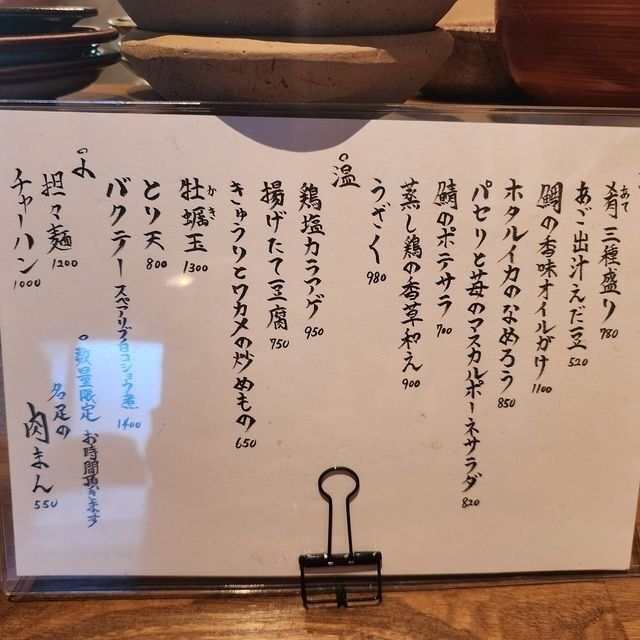 肴 三種盛り 780
あて
あご出汁えだ豆 520
鯛の香味オイルがけ 1100
ホタルイカのなめろう 850
パセリと苺のマスカルポーネサラダ 820
鯖のポテサラ 700
蒸し鶏の香草和え 900
うざく 980
温
鶏塩カラアゲ 950
揚げたて豆腐 750
きゅうりとワカメの炒めもの 650
牡蠣玉 1300
かき
とり天 800
バクテー スペアリブ白コショウ煮 1400
〆
担々麺 1200
チャーハン 1000
数量限定 お時間頂きます
名足の
肉まん 550